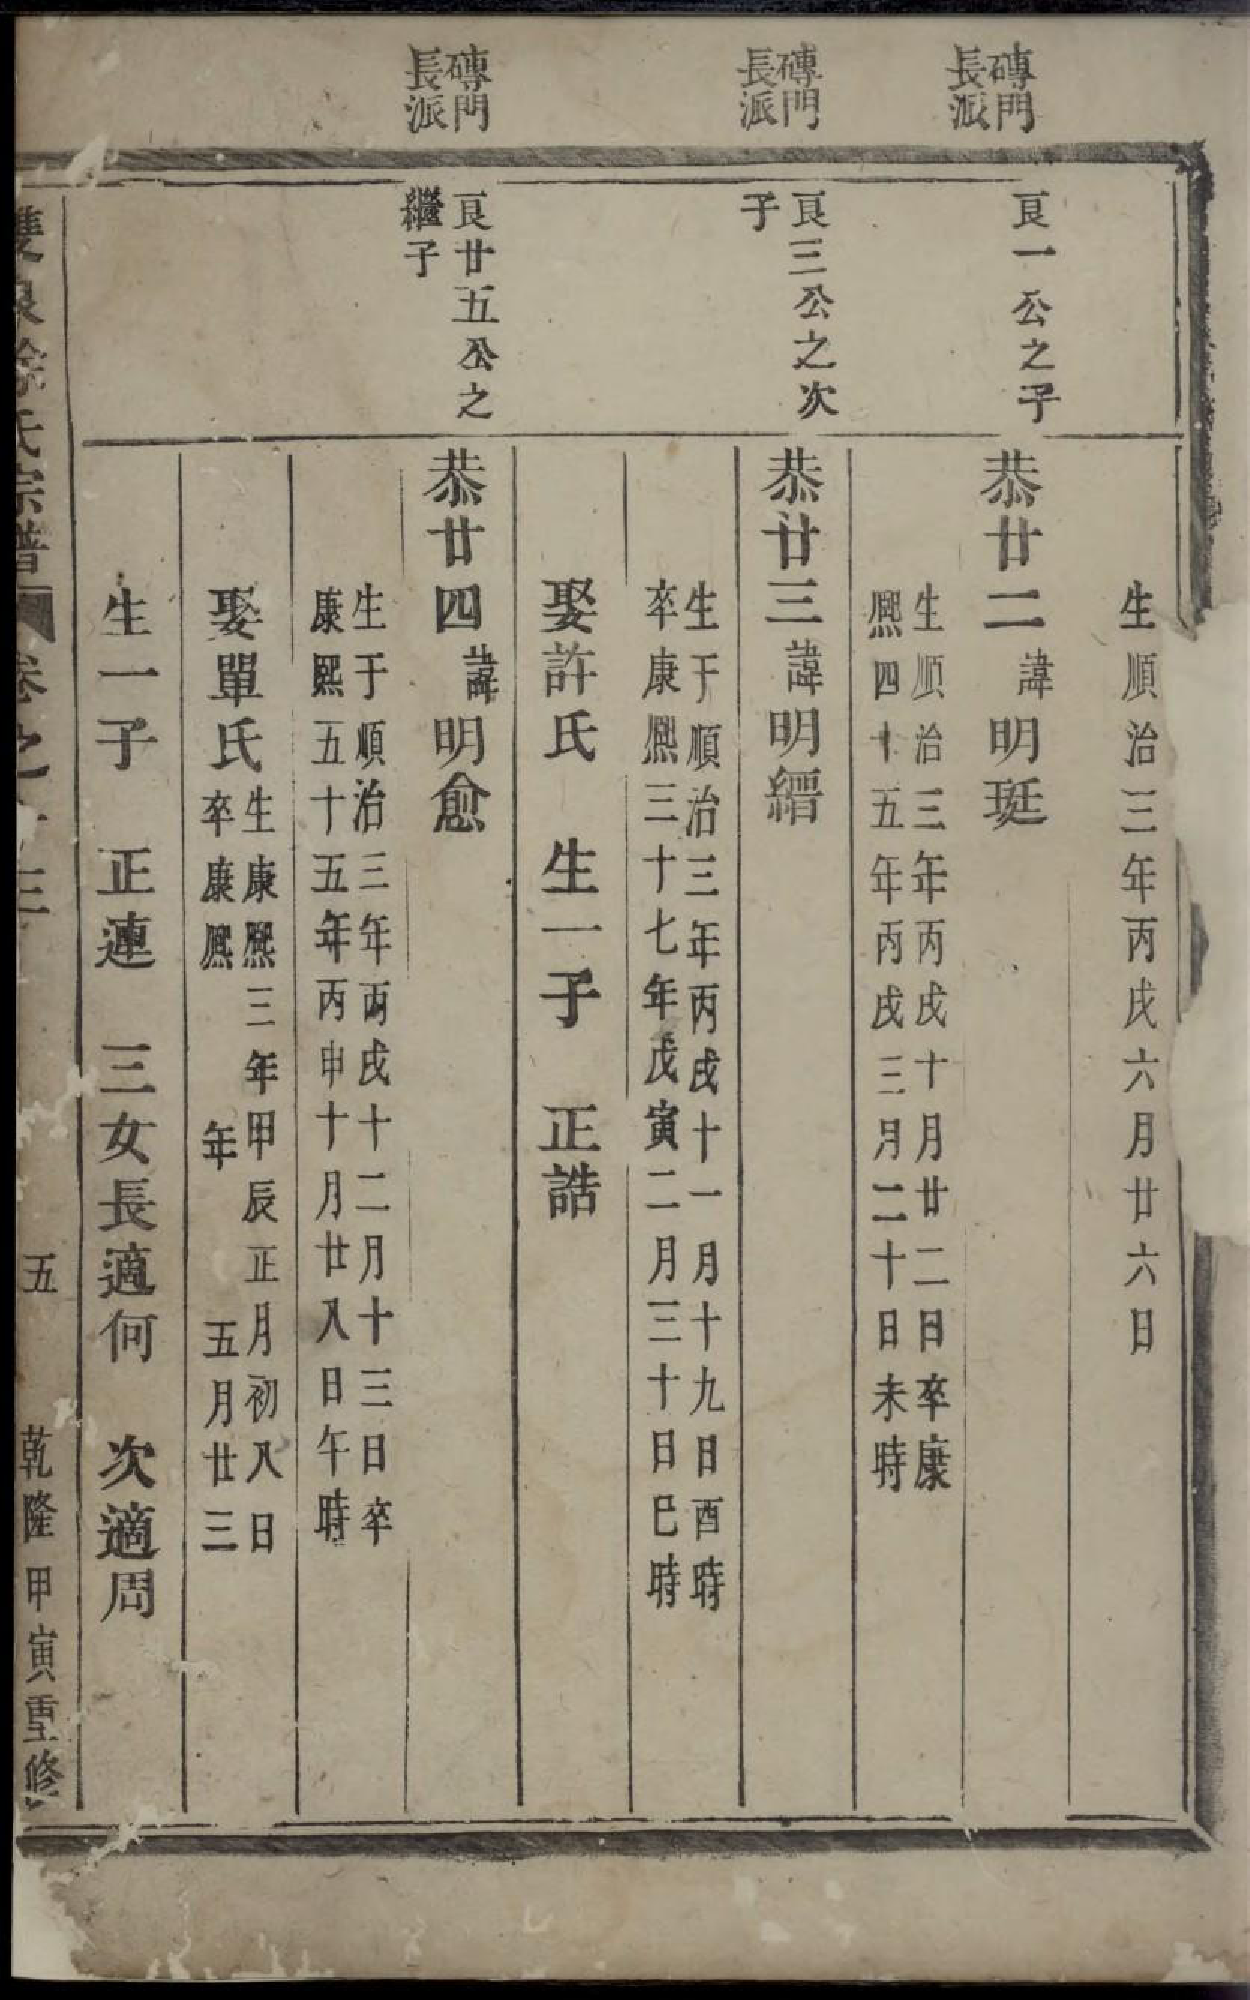 生順治三年丙戌六月廿六日
磚門
長派
良一公之子
恭廿二 諱明珽
生順治三年丙戌十月廿二日卒康
熙四十五年丙戌三月二十日未時
磚門
長派
良三公之次
子
恭廿三 諱明縉
生于順治三年丙戌十一月十九日酉時
卒康熙三十七年戊寅二月三十日巳時
娶許氏 生一子 正誥
磚門
長派
良廿五公之
繼子
恭廿四 諱明愈
生于順治三年丙戌十二月十三日卒
康熙五十五年丙申十月廿八日午時
娶單氏
生康熙三年甲辰正月初八日
卒康熙 年 五月廿三
生一子 正連 三女長適何 次適周
徐氏宗譜 卷之 三 五 乾隆甲寅重修